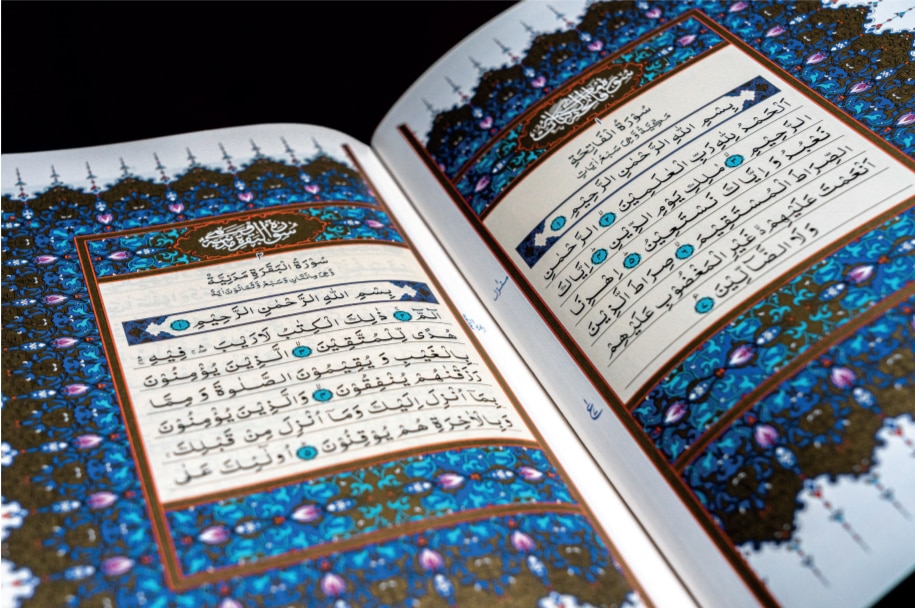 سُورَةُ الْفَاتِحَةِ
مَكِّيَّةٌ وَهِيَ سَبْعُ اٰيَاتٍ
بِسْمِ اللهِ الرَّحْمٰنِ الرَّحِيْمِ ١
اَلْحَمْدُ لِلّٰهِ رَبِّ الْعٰلَمِيْنَ ٢ الرَّحْمٰنِ
الرَّحِيْمِ ٣ مٰلِكِ يَوْمِ الدِّيْنِ ٤ اِيَّاكَ
نَعْبُدُ وَ اِيَّاكَ نَسْتَعِيْنُ ٥ اِهْدِنَا
الصِّرَاطَ الْمُسْتَقِيْمَ ٦ صِرَاطَ الَّذِيْنَ
اَنْعَمْتَ عَلَيْهِمْ غَيْرِ الْمَغْضُوْبِ عَلَيْهِمْ
وَلَا الضَّآلِّيْنَ ٧
سُورَةُ الْبَقَرَةِ مَدَنِيَّةٌ
بِسْمِ اللهِ الرَّحْمٰنِ الرَّحِيْمِ ١
الٓمّٓ ٢ ذٰلِكَ الْكِتٰبُ لَا رَيْبَ فِيْهِ
هُدًى لِّلْمُتَّقِيْنَ ٣ الَّذِيْنَ يُؤْمِنُوْنَ
بِالْغَيْبِ وَ يُقِيْمُوْنَ الصَّلٰوةَ وَ مِمَّا
رَزَقْنٰهُمْ يُنْفِقُوْنَ ٤ وَالَّذِيْنَ يُؤْمِنُوْنَ
بِمَآ اُنْزِلَ اِلَيْكَ وَمَآ اُنْزِلَ مِنْ قَبْلِكَ
وَبِالْاٰخِرَةِ هُمْ يُوْقِنُوْنَ ٥ اُولٰٓئِكَ عَلٰى